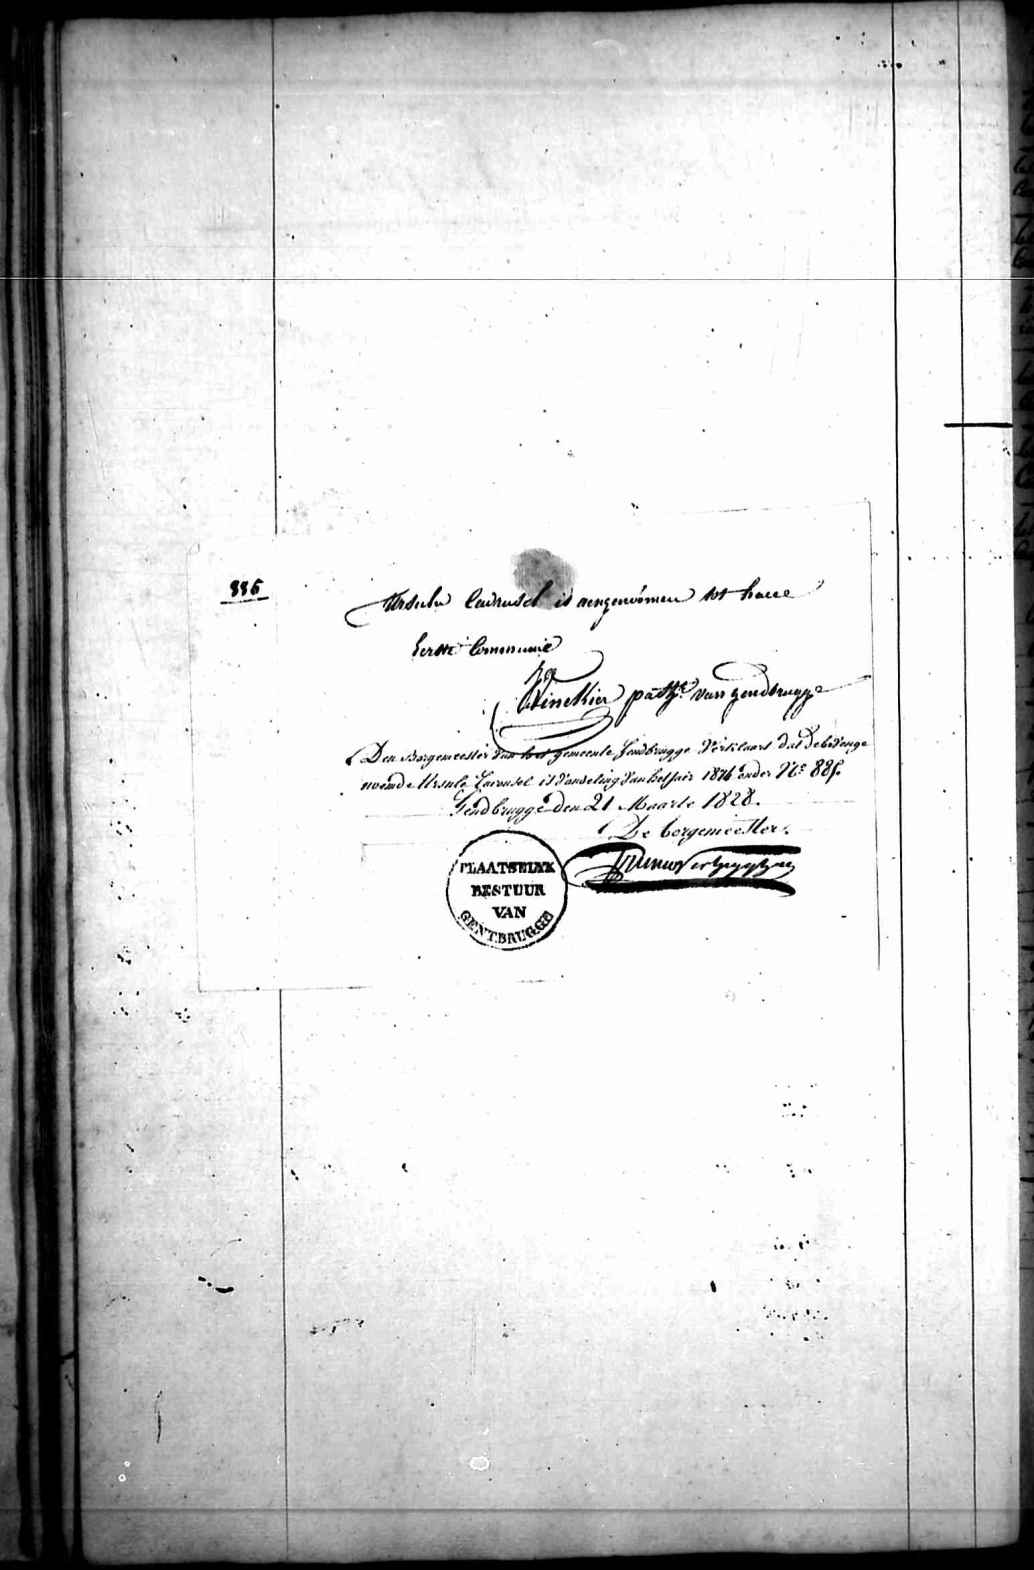 886
Ursula Carrusel is aengenomen tot haere
Eerste Communie
past.r van gendbrugge
Den Borgemeester van het gemeente Gendbrugge Verklaart dat de bovenge
noemde Ursula Carousel is vondeling van het jair 1816 onder N.o 886.
Gendbrugge den 21 Maarte 1828.
De borgemeester.
PLAATSELYK
BESTUUR
VAN
GENTBRUGGE